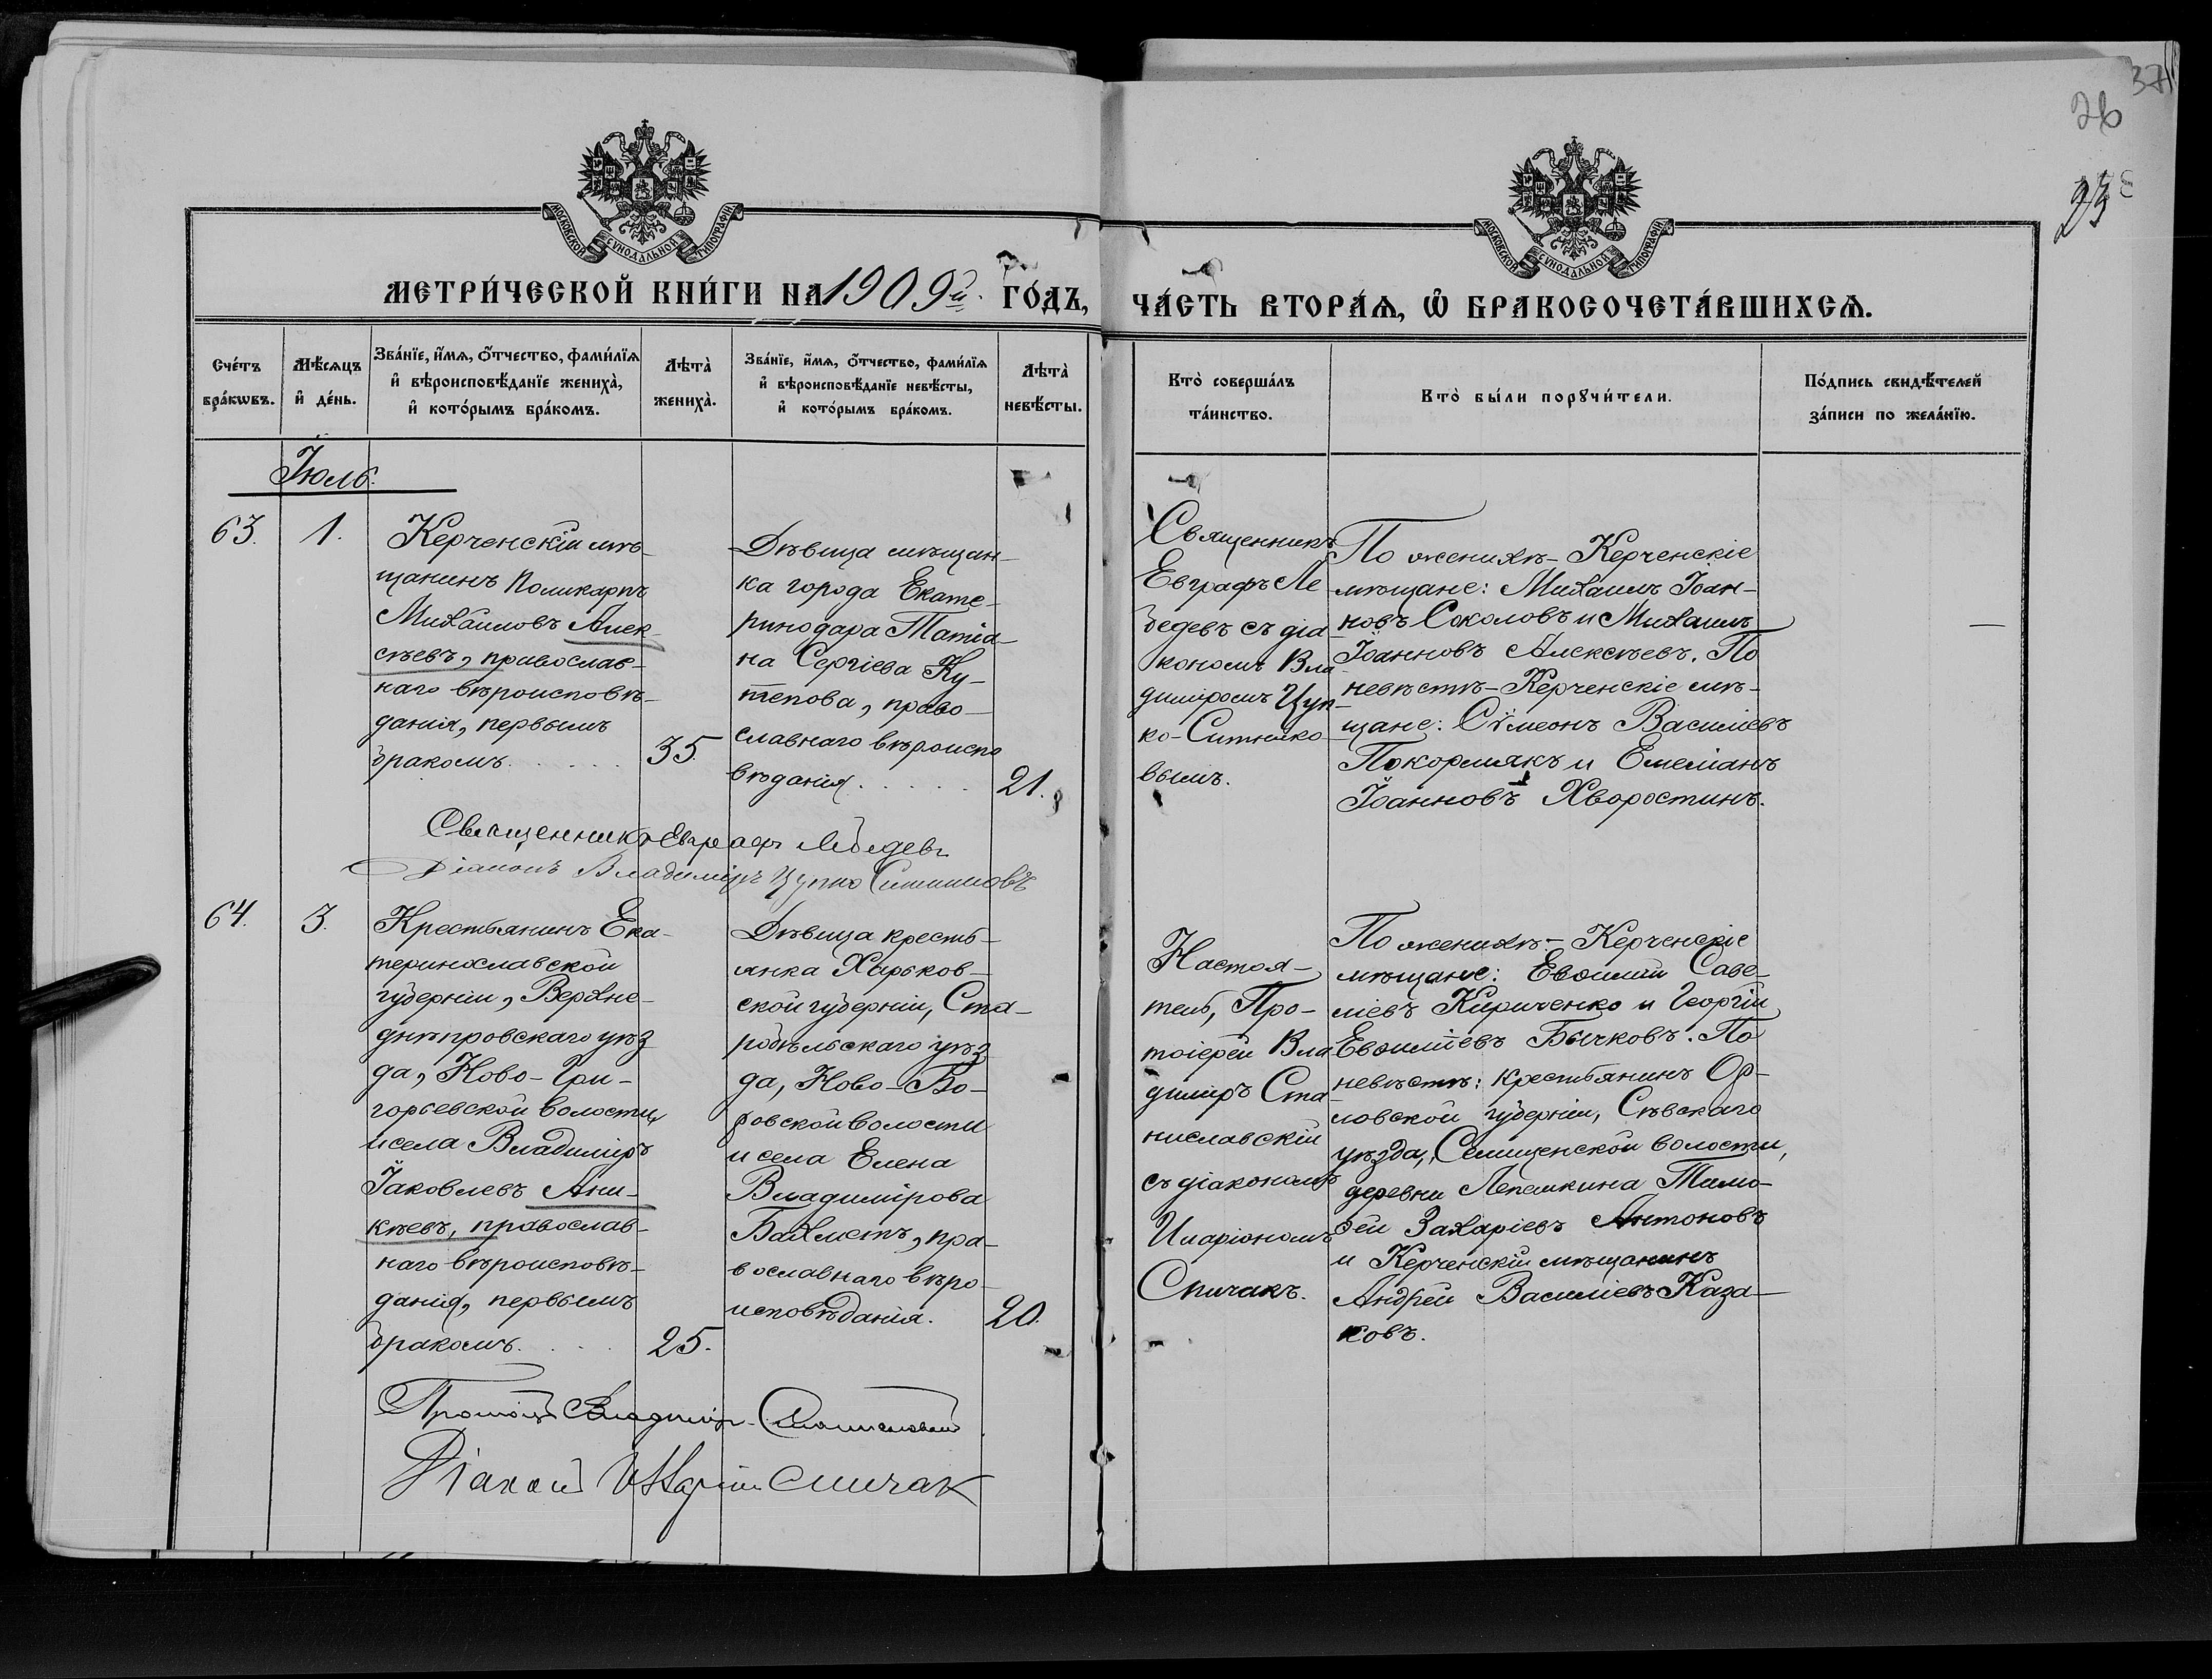 37
26
23
МОСКОВСКОЙ СѴНОДАЛЬНОЙ ТИПОГРАФІИ
МОСКОВСКОЙ СѴНОДАЛЬНОЙ ТИПОГРАФІИ
МЕТРИ́ЧЕСКОЙ КНИ́ГИ НА 1909й. ГО́ДЪ,
ЧА́СТЬ ВТОРА́Ѧ, Ѽ БРАКОСОЧЕТА́ВШИХСѦ.
Сче́тъ
бра́кѡвъ.
Мѣ́сяцъ
и҆ де́нь.
Зва́нїе, и҆́мѧ, ѻ҆́тчество, фами́лїѧ
и҆ вѣроисповѣ́данїе жениха̀,
и҆ кото́рымъ бра́комъ.
Лѣта̀
жениха̀.
Зва́нїе, и҆́мѧ, ѻ҆́тчество, фами́лїѧ
и҆ вѣроисповѣ́данїе невѣ́сты,
и҆ кото́рымъ бра́комъ.
Лѣта̀
невѣ́сты.
Кто̀ соверша́лъ
та́инство.
Кто̀ бы́ли порꙋчи́тели.
По́дпись свидѣ́телей
за́писи по жела́нїю.
Іюль.
63.
1.
Керченскій мѣ-
щанинъ Поликарпъ
Михаиловъ Алек-
сѣевъ, православ-
наго вѣроисповѣ-
данія, первымъ
бракомъ. . . . .
35.
Дѣвица мѣщан-
ка города Екате-
ринодара Татіа-
на Сергіева Ку-
тепова, право-
славнаго вѣроиспо
вѣданія. . . . .
21.
Священникъ
Евграфъ Ле-
бедевъ съ діа-
кономъ Вла-
диміромъ Цуп-
ко-Ситнико-
вымъ.
По женихѣ - Керченскіе
мѣщане: Михаилъ Іоан-
новъ Соколовъ и Михаилъ
Іоанновъ Алексѣевъ. По
невѣстѣ - Керченскіе мѣ-
щане: Сѵмеонъ Василіевъ
Покормякъ и Емеліанъ
Іоанновъ Хворостинъ.
—
Священникъ Евграфъ Лебедевъ
Діаконъ Владиміръ Цупко Ситниковъ
64.
3.
Крестьянинъ Ека-
теринославской
губерніи, Верхне-
днѣпровскаго уѣз
да, Ново-Гри-
горьевской волости
и села Владиміръ
Іаковлевъ Ани-
кѣевъ, православ-
наго вѣроисповѣ-
данія, первымъ
бракомъ. . . .
25.
Дѣвица кресть-
янка Харьков-
ской губерніи, Ста-
робѣльскаго уѣз
да, Ново-Бо-
ровской волости
и села Елена
Владимірова
Бахметъ, пра-
вославнаго вѣро-
исповѣданія.
20.
Настоя-
тель, Про-
тоіерей Вла
диміръ Ста-
ниславскій
съ діакономъ
Иларіономъ
Спичакъ.
По женихѣ - Керченскіе
мѣщане: Евѳимій Саве-
ліевъ Кириченко и Георгій
Евѳиміевъ Бычковъ. По
невѣстѣ: крестьянинъ Ор-
ловской губерніи, Сѣвскаго
уѣзда, Семиценской волости,
деревни Лепешкина Тимо-
ѳей Захаріевъ Антоновъ
и Керченскій мѣщанинъ
Андрей Василіевъ Каза-
ковъ.
Протоіерей Владиміръ Станиславскій
Діаконъ Иларіонъ Спичак